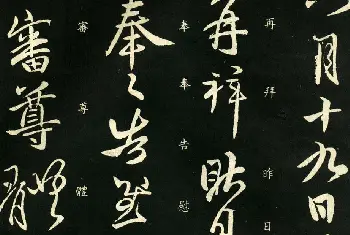 月十九日
再拜昨日
再拜昨日
奉奉告慰
奉〻告慰
審尊體
審尊體